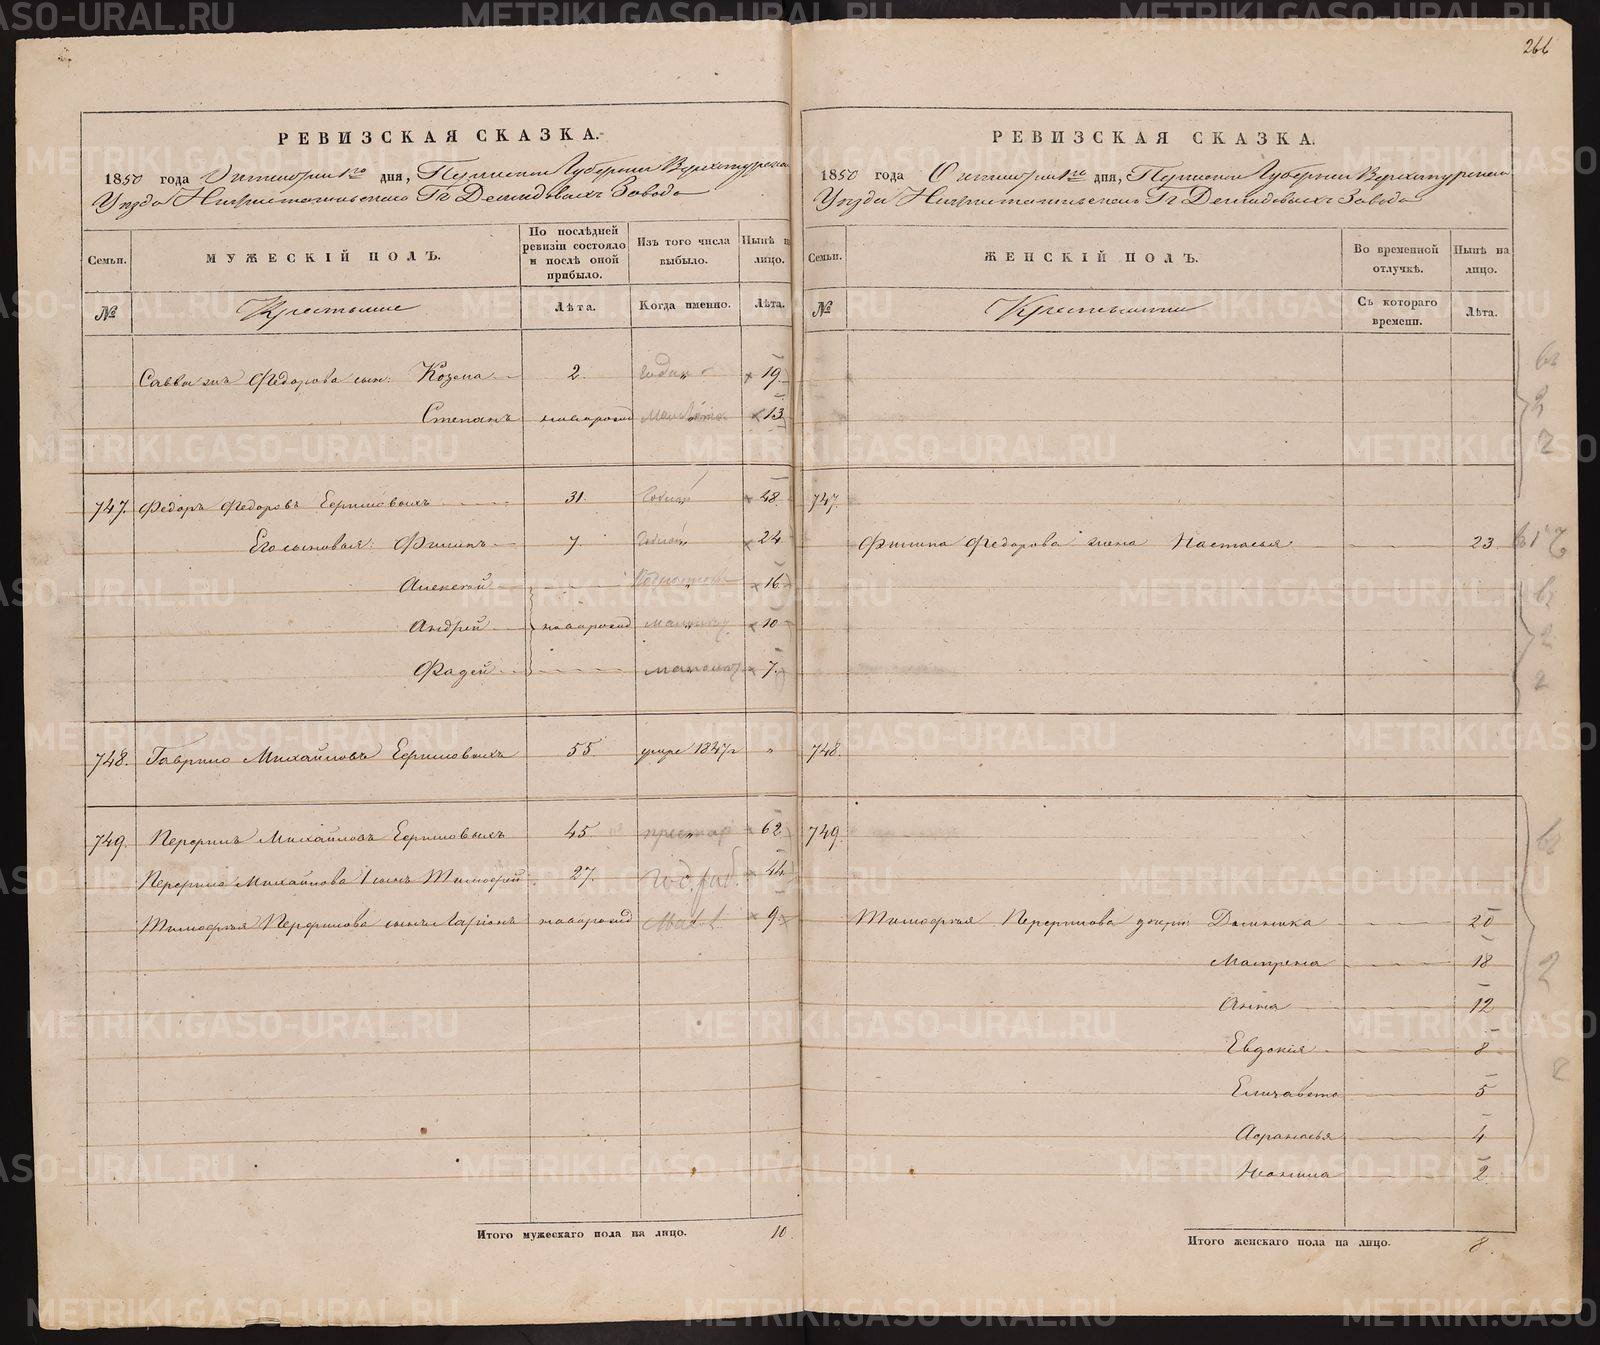 266
РЕВИЗСКАЯ СКАЗКА.
1850 года Октября 1го дня, Пермской Губернии Верхотурскаго
Уезда Нижнетагильскаго Гг Демидовых Завода
Семьи. МУЖЕСКІЙ ПОЛЪ. По послѣдней ревизіи состояло и послѣ оной прибыло. Изъ того числа выбыло. Нынѣ на лицо.
№ Крестьяне Лѣта. Когда именно. Лѣта.
Федорова сын: Козма 2. 19.
Степанъ новорожд 13
747. Федоръ Федоровъ Ермиловыхъ 31. 48.
Его сыновья: Филипъ 7. 24.
Алексей 16.
Андрей новорожд 10
Фадей 7.
748. Гаврило Михайловъ Ермиловыхъ 55 умре 1847г "
749. Перфилъ Михайловъ Ермиловыхъ 45 62
Перфила Михайлова 1 сынъ Тимофей 27. 44
Тимофея Перфилова сынъ Ларіонъ новорожд 9
Итого мужескаго пола на лицо. 10.
РЕВИЗСКАЯ СКАЗКА.
1850 года Октября 1го дня, Пермской Губернии Верхотурскаго
Уезда Нижнетагильскаго Гг Демидовыхъ Завода
Семьи. ЖЕНСКІЙ ПОЛЪ. Во временной отлучкѣ. Нынѣ на лицо.
№ Крестьянки Съ котораго времени. Лѣта.
747.
Филипа Федорова жена Настасья 23
748.
749.
Тимофея Перфилова дочери: Домника 20
Матрена 18
Анна 12
Евдокія 8
Елизавета 5
Афанасья 4
Неонила 2
Итого женскаго пола на лицо. 8.
METRIKI.GASO-URAL.RU